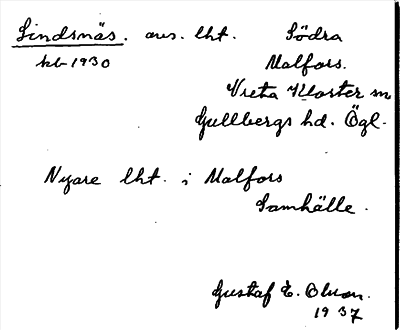 Lindsnäs. avs. lht. Södra
kb 1930 Malfors.
Vreta Kloster sn
Gullbergs hd. Ögl.
Nyare lht. i Malfors
Samhälle.
Gustaf E. Olson.
1937